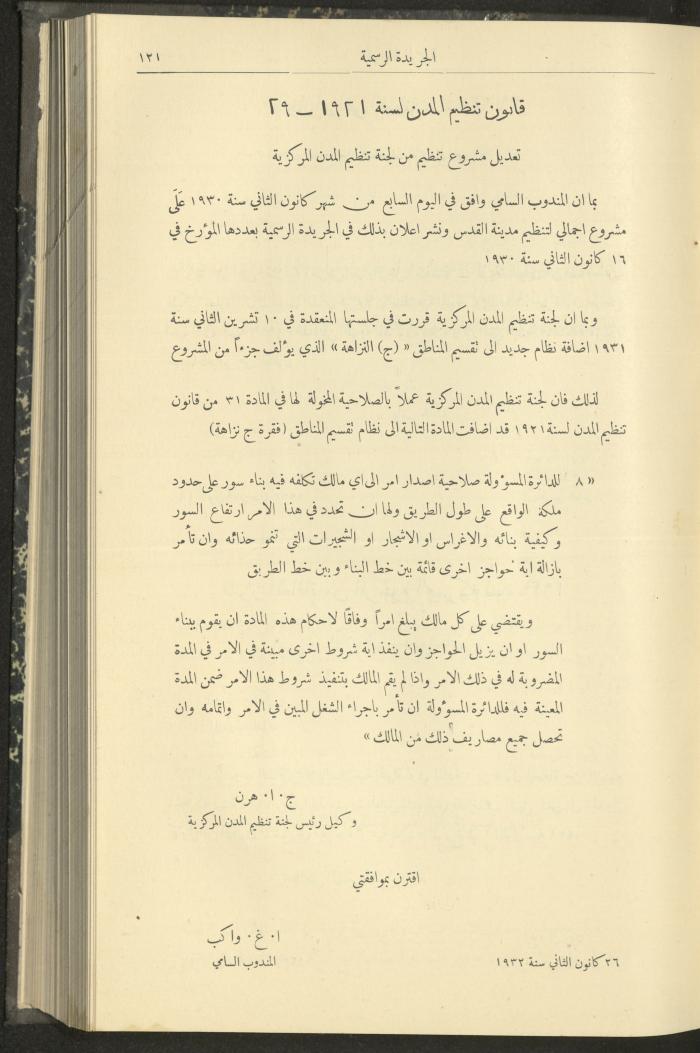 الجريدة الرسمية ١٢١
قانون تنظيم المدن لسنة ١٩٢١ – ٢٩
تعديل مشروع تنظيم من لجنة تنظيم المدن المركزية
بما ان المندوب السامي وافق في اليوم السابع من شهر كانون الثاني سنة ١٩٣٠ عَلَى
مشروع اجمالي لتنظيم مدينة القدس ونشر اعلان بذلك في الجريدة الرسمية بعددها المؤرخ في
١٦ كانون الثاني سنة ١٩٣٠
وبما ان لجنة تنظيم المدن المركزية قررت في جلستها المنعقدة في ١٠ تشرين الثاني سنة
١٩٣١ اضافة نظام جديد الى تقسيم المناطق « (ج) النزاهة » الذي يؤلف جزءاً من المشروع
لذلك فان لجنة تنظيم المدن المركزية عملاً بالصلاحية المخولة لها في المادة ٣١ من قانون
تنظيم المدن لسنة ١٩٢١ قد اضافت المادة التالية الى نظام تقسيم المناطق (فقرة ج نزاهة)
« ٨ للدائرة المسؤولة صلاحية اصدار امر الى اي مالك تكلفه فيه بناء سور على حدود
ملكه الواقع على طول الطريق ولها ان تحدد في هذا الامر ارتفاع السور
وكيفية بنائه والاغراس او الاشجار او الشجيرات التي تنمو حذائه وان تأمر
بازالة اية حواجز اخرى قائمة بين خط البناء وبين خط الطريق
ويقتضي على كل مالك يبلغ امراً وفاقاً لاحكام هذه المادة ان يقوم ببناء
السور او ان يزيل الحواجز وان ينفذ اية شروط اخرى مبينة في الامر في المدة
المضروبة له في ذلك الامر واذا لم يقم المالك بتنفيذ شروط هذا الامر ضمن المدة
المعينة فيه فللدائرة المسؤولة ان تأمر باجراء الشغل المبين في الامر واتمامه وان
تحصل جميع مصاريف ذلك من المالك »
ج٠ ا٠ هرن
وكيل رئيس لجنة تنظيم المدن المركزية
اقترن بموافقتي
ا٠ غ٠ واكب
٢٦ كانون الثاني سنة ١٩٣٢ المندوب السامي